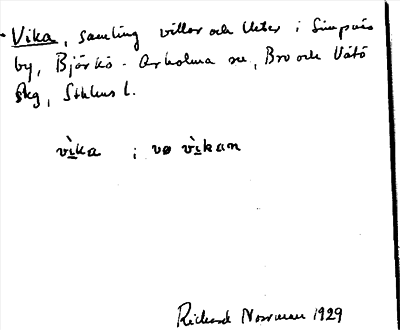 Vika, samling villor och  i Simpnäs
by, Björkö-Arholma sn, Bro och Vätö
skg, Sthlms l.
vìka ; vø vìkan
Rickard Norrman 1929